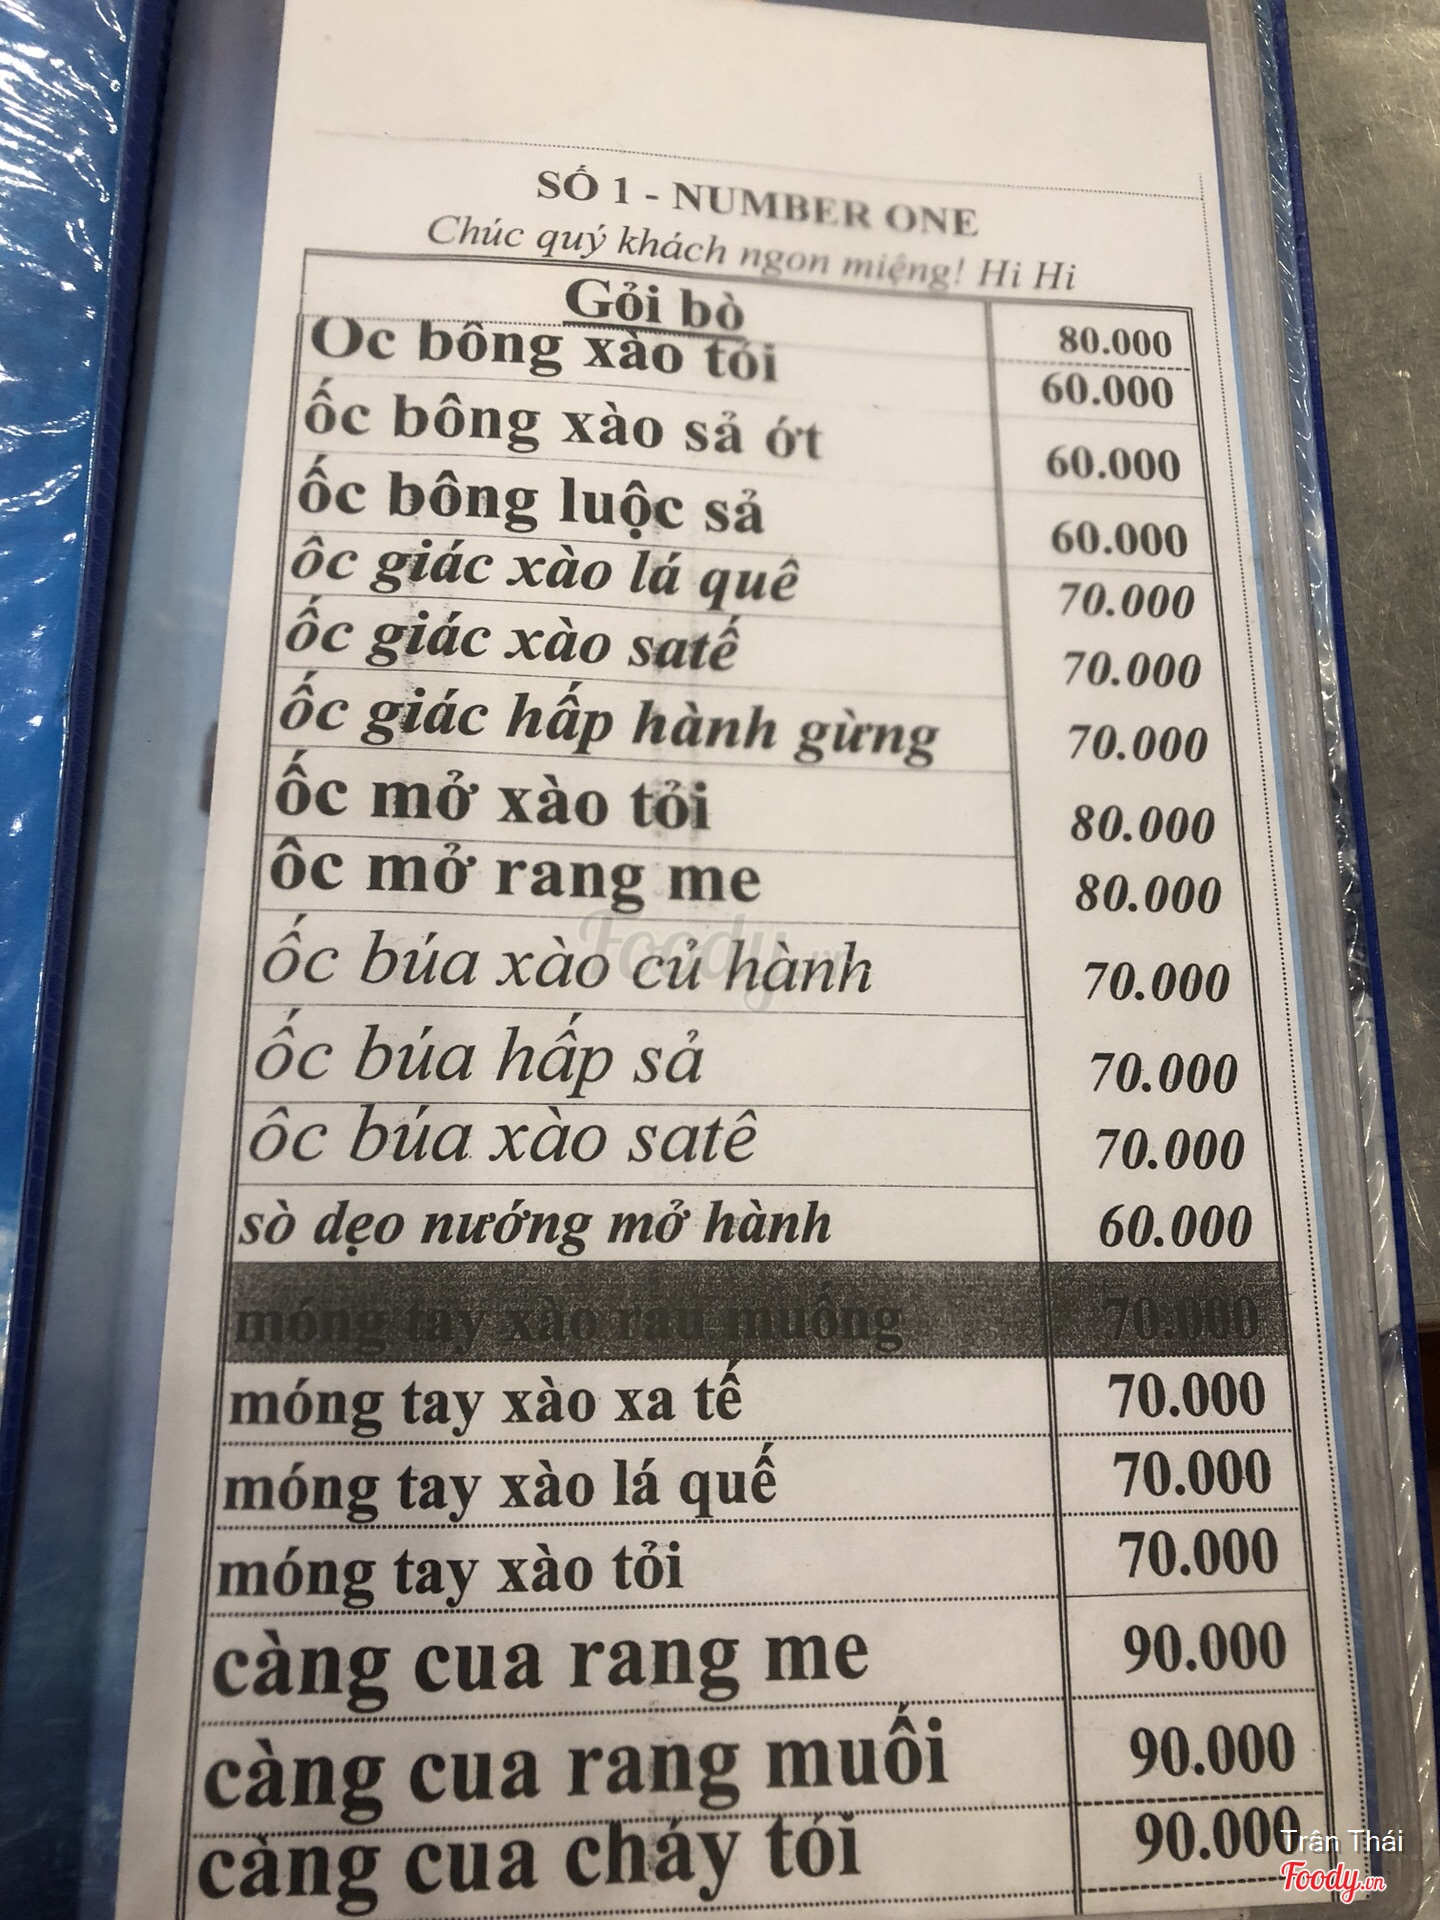 SỐ 1 - NUMBER ONE
Chúc quý khách ngon miệng! Hi Hi
Gỏi bò 80.000
Ốc bông xào tỏi 60.000
ốc bông xào sả ớt 60.000
ốc bông luộc sả 60.000
ôc giác xào lá quê 70.000
ốc giác xào satế 70.000
ốc giác hấp hành gừng 70.000
ốc mở xào tỏi 80.000
ôc mở rang me 80.000
ốc búa xào củ hành 70.000
ốc búa hấp sả 70.000
ôc búa xào satê 70.000
sò dẹo nướng mở hành 60.000
móng tay xào rau muống 70.000
móng tay xào xa tế 70.000
móng tay xào lá quế 70.000
móng tay xào tỏi 70.000
càng cua rang me 90.000
càng cua rang muối 90.000
càng cua cháy tỏi 90.000
Foody
Trân Thái
Foody.vn